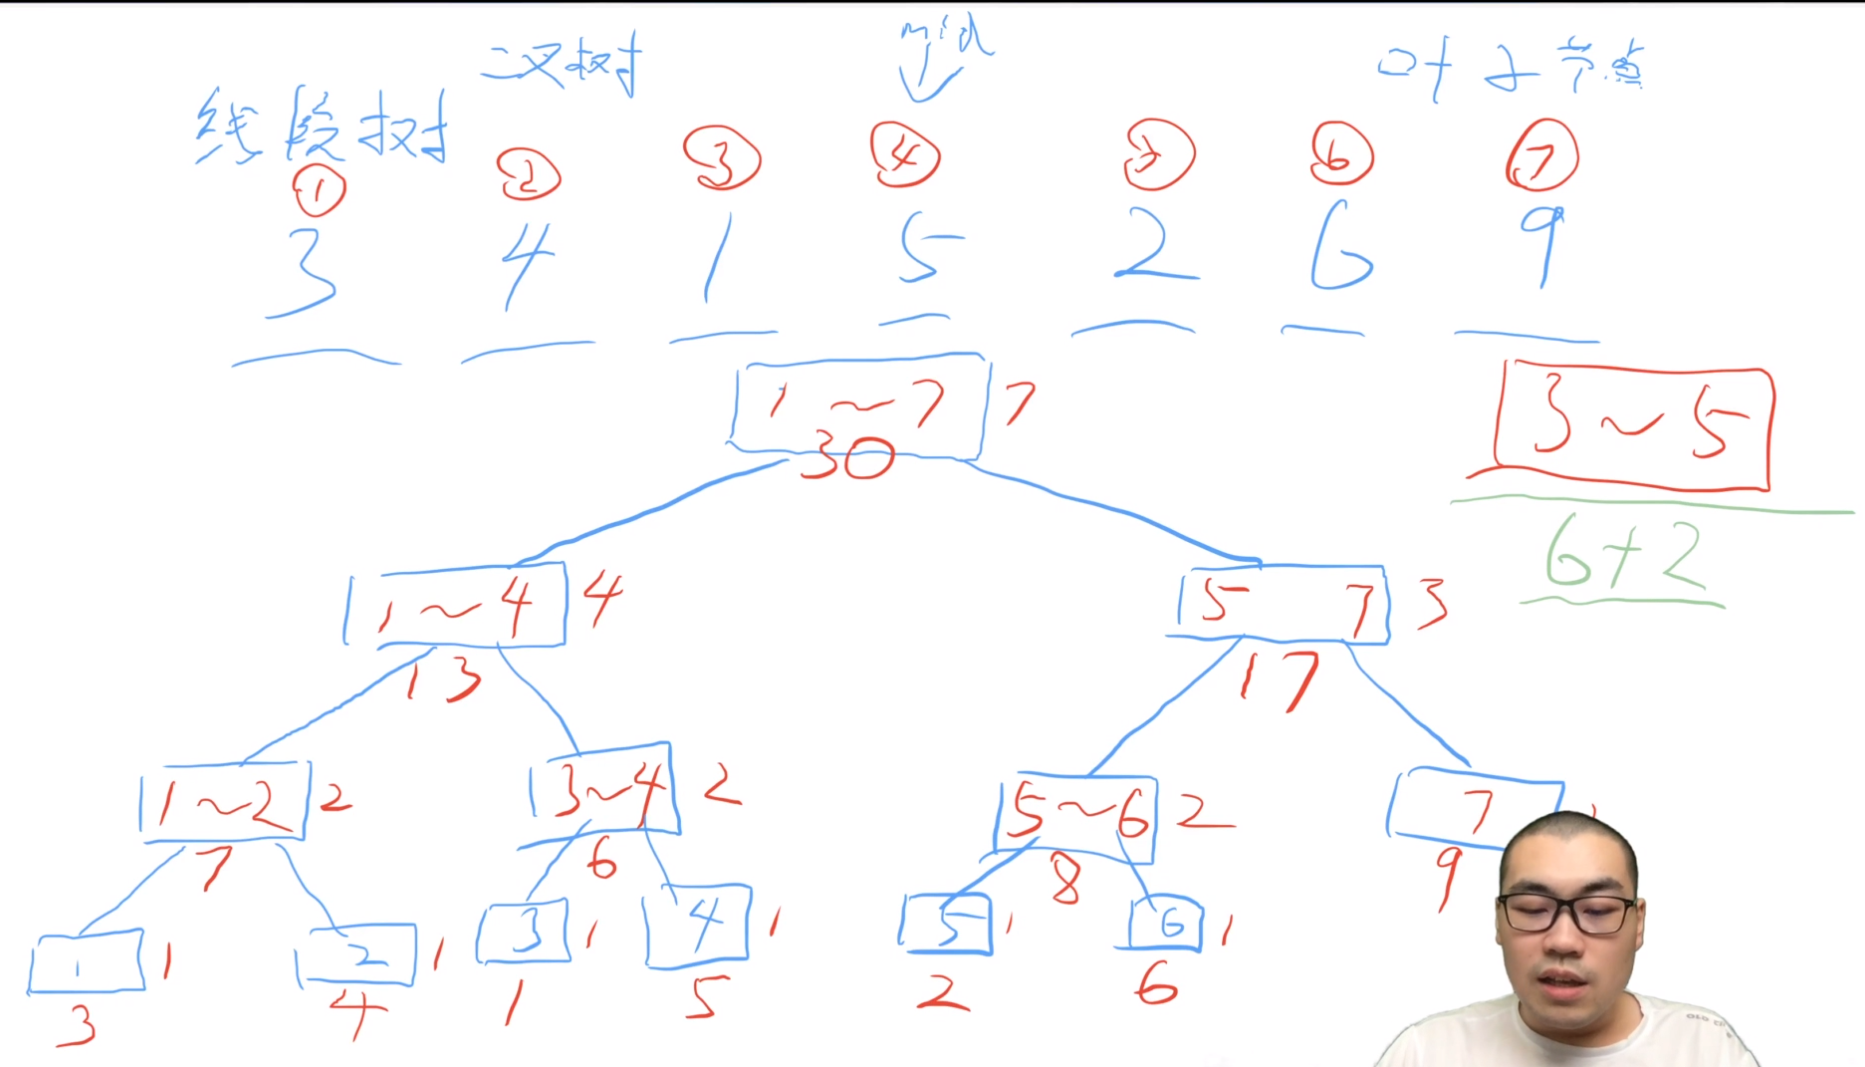 二叉树
mid
叶子节点
线段树
① ② ③ ④ ⑤ ⑥ ⑦
3 4 1 5 2 6 9
1~7 7
30
3~5
6+2
1~4 4
13
5 7 3
17
1~2 2
7
3~4 2
6
5~6 2
8
7
9
1 1
3
2 1
4
3 1
1
4 1
5
5 1
2
6 1
6